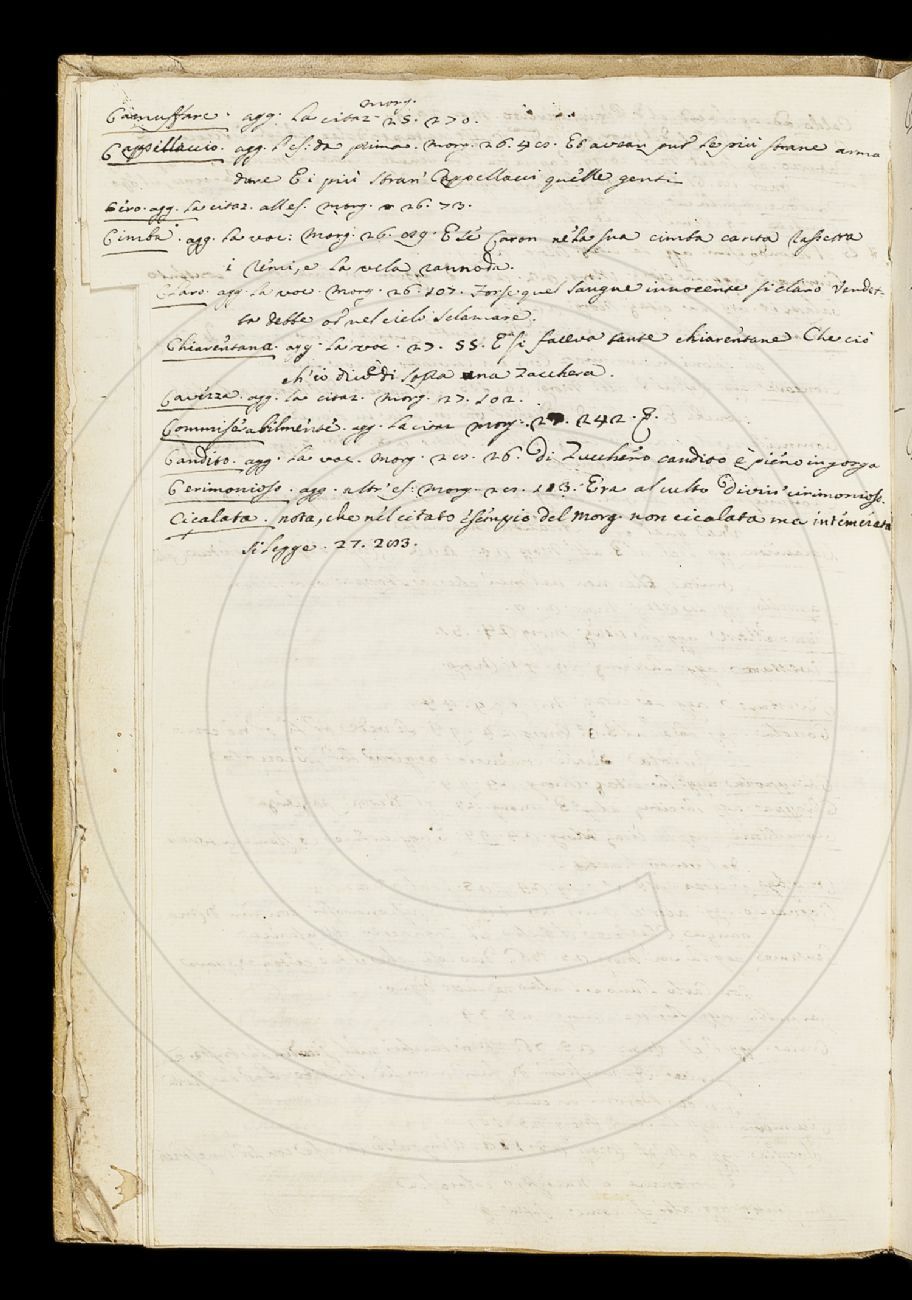 Camuffare. agg. la citaz. morg. 25. 270.
Cappillaccio. agg. l'es. da prima. morg. 26. 40. Et avean pur le più strane arma
dure E i più stran Cappellacci quelle genti
Ciro. agg. la citaz. all es. morg. 26. 73.
Cimba. agg. la voc: morg. 26. 89. E se Caron ne la sua cimba carca rassetta
i remi, e la vela rannoda.
Claro. agg. la voc. morg. 26. 107. Forse quel sangue innocente si claro vendet-
ta debbe or nel cielo sclamare.
Chiarentana. agg. la voc. 27. 55. E si faceva tante chiarentane Che ciò
ch'io dico è di sopra una zacchera.
Cavezza. agg. la citaz. morg. 27. 102.
Commiserabilmente. agg. la citaz. morg. 27. 242.
Candito. agg. la voc. morg. 28. 26. Di Zucchero candito è pieno in gorga
Cerimonioso. agg. altr' es. morg. 28. 113. Era al culto divin' cirimonioso.
Cicalata. nota, che nel citato esempio del Morg. non cicalata ma intemerata
si legge. 27. 203.